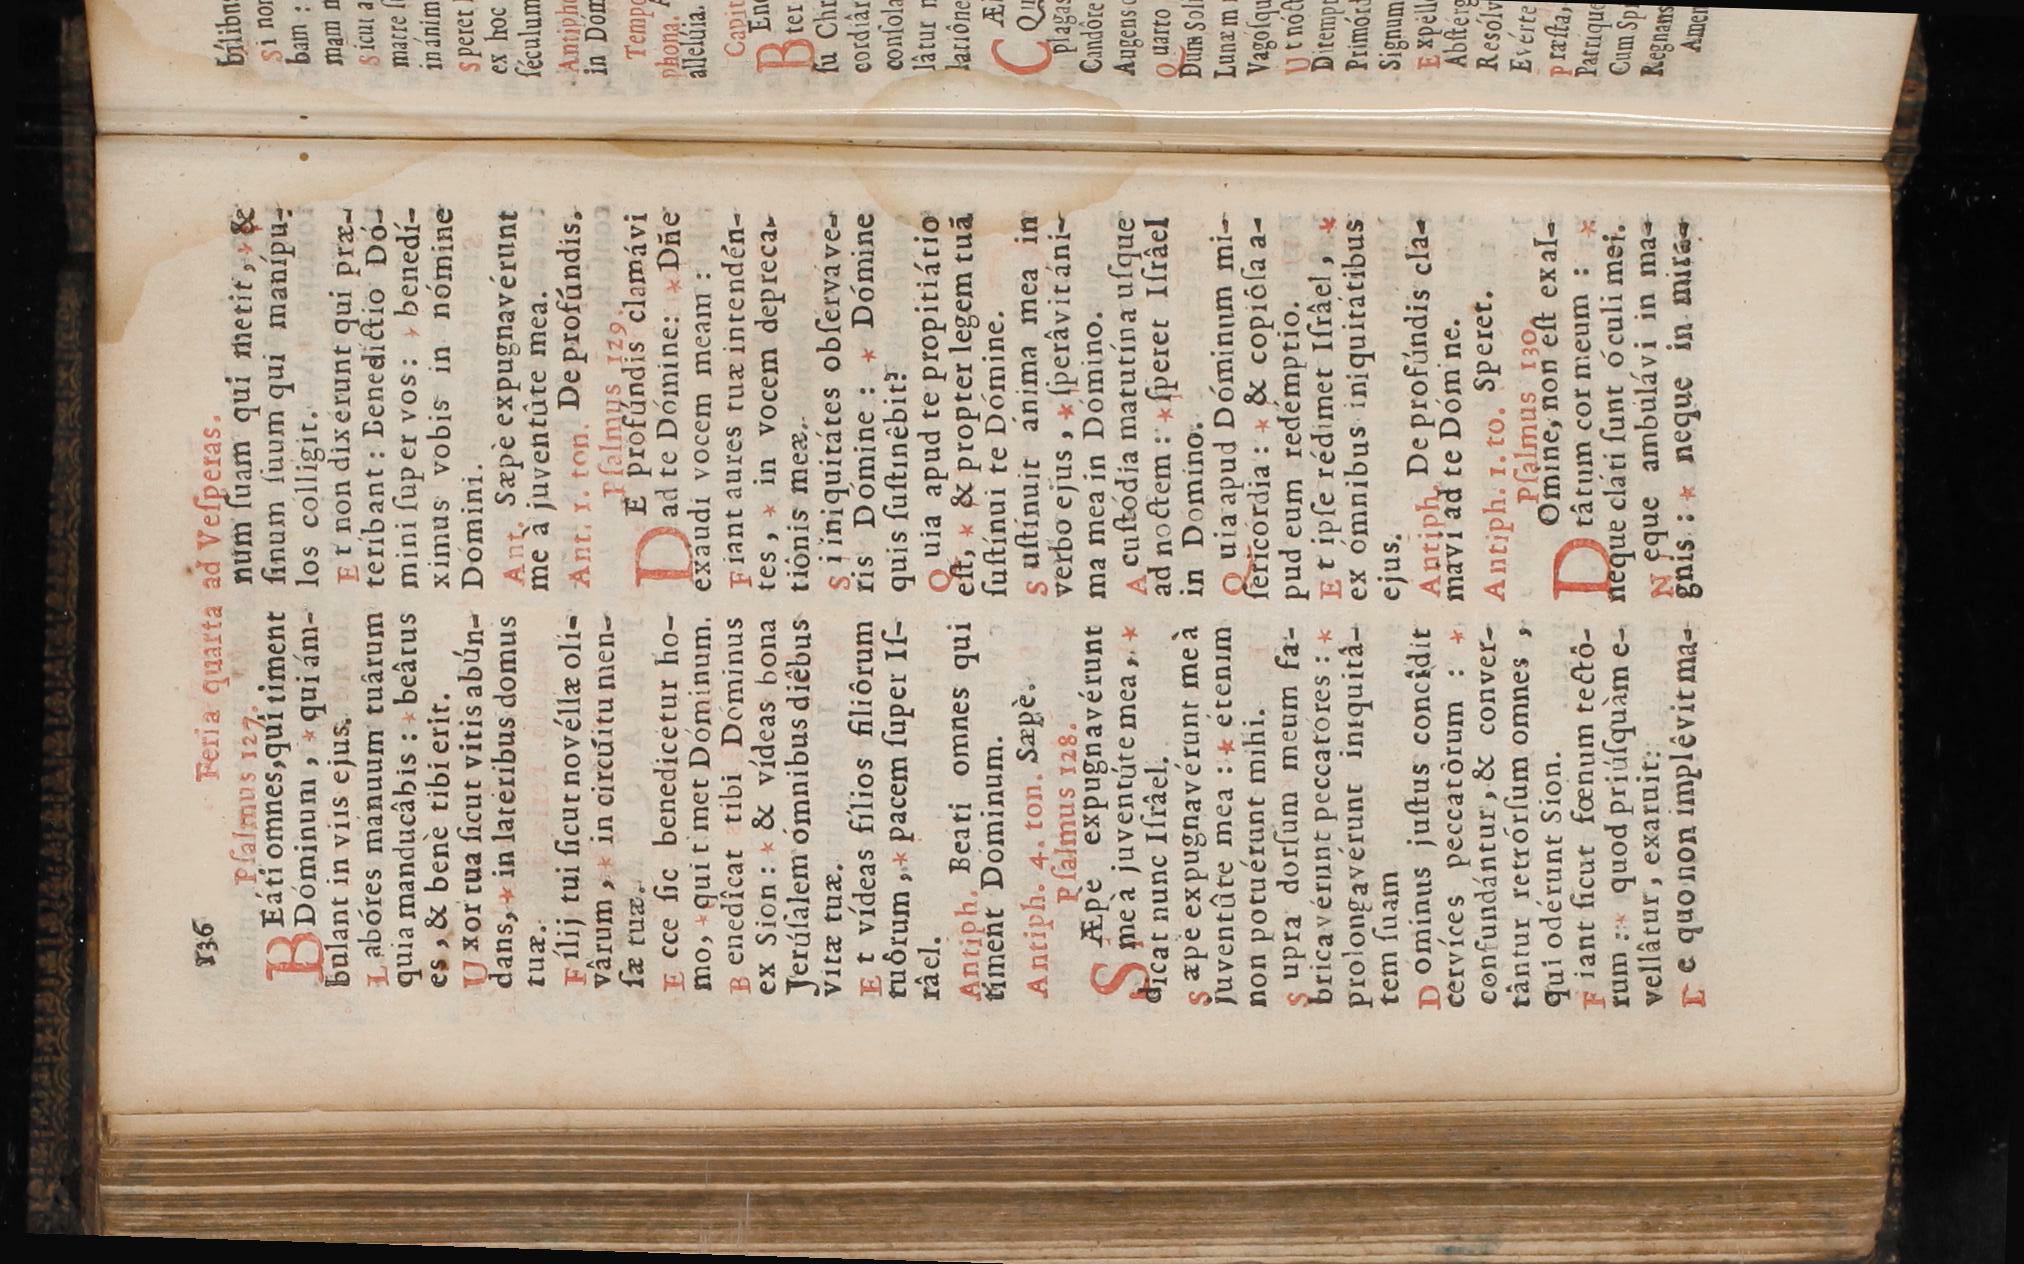 136
Feria quarta ad Veſperas.
Pſalmus 127.
BEáti omnes, qui timent
Dóminum, * qui ám-
bulant in viis ejus.
Labóres mánuum tuârum
quia manducâbis : * beâtus
es, & benè tibi erit.
Uxor tua ſicut vitis abún-
dans, * in latéribus domus
tuæ.
Fílij tui ſicut novéllæ olí-
vârum, * in circúitu men-
ſæ tuæ.
Ecce ſic benedicétur ho-
mo, * qui timet Dóminum.
Benedîcat tibi Dominus
ex Sion : * & vídeas bona
Jerúſalem ómnibus diêbus
vitæ tuæ.
Et vídeas fílios filiôrum
tuôrum, * pacem ſuper Iſ-
râel.
Antiph. Beati omnes qui
tíment Dominum.
Antiph. 4. ton. Sæpè.
Pſalmus 128.
SÆpe expugnavérunt
me à juventúte mea, *
dicat nunc Iſrâel.
Sæpe expugnavérunt me à
juventûte mea : * étenim
non potuérunt mihi.
Supra dorſum meum fa-
bricavérunt peccatores : *
prolongavérunt iniquitâ-
tem ſuam
Dóminus juſtus concîdit
cervíces peccatôrum : *
confundántur, & conver-
tântur retrórſum omnes,
qui odérunt Sion.
Fiant ſicut fœnum tectô-
rum : * quod priúſquàm e-
vellâtur, exaruit:
De quo non implêvit ma-
num ſuam qui metit, * &
ſinum ſuum qui manípu-
los colligit.
Et non dixerunt qui præ-
teríbant : Benedictio Dó-
mini ſuper vos : * benedí-
ximus vobis in nómine
Dómini.
Ant. Sæpè expugnavérunt
me à juventûte mea.
Ant. 1. ton. De profúndis.
Pſalmus 129.
DE profúndis clamávi
ad te Dómine: * Dñe
exaudi vocem meam :
Fiant aures tuæ intendén-
tes, * in vocem depreca-
tiônis meæ.
Si iniquitátes obſerváve-
ris Dómine : * Dómine
quis ſuſtinêbit?
Quia apud te propitiátio
eſt, * & propter legem tuã
ſuſtínui te Dómine.
Suſtínuit ánima mea in
verbo ejus, * ſperâvit áni-
ma mea in Dómino.
A cuſtódia matutína uſque
ad noctem : * ſperet Iſrâel
in Domino.
Quia apud Dóminum mi-
ſericórdia : * & copiôſa a-
pud eum redémptio.
Et ipſe rédimet Iſrâel, *
ex ómnibus iniquitátibus
ejus.
Antiph. De profúndis cla-
mavi ad te Dómine.
Antiph. 1. to. Speret.
Pſalmus 130
DOmine, non eſt exal-
tâtum cor meum : *
neque eláti ſunt óculi mei.
Neque ambulávi in ma-
gnis : * neque in mirá-
bílibus
Si non
bam :
mam m
Sicut a
matre ſ
in ánim
Speret
ex hoc
ſéculum
Antipho
in Dóm
Tempo
phona. A
allelúia.
Capit
BEne
ter
ſu Chr
cordiár
conſola
lâtur n
latiône
CÆl
Qu
plagas
Candôre
Augens
Quarto
Dum Soli
Lunæ m
Vagóſqu
Ut nóct
Ditempt
Primórd
Signum
Expélle
Abſtérg
Resólv
Evérte
Præſta,
Patríque
Cum Spi
Regnans
Amen